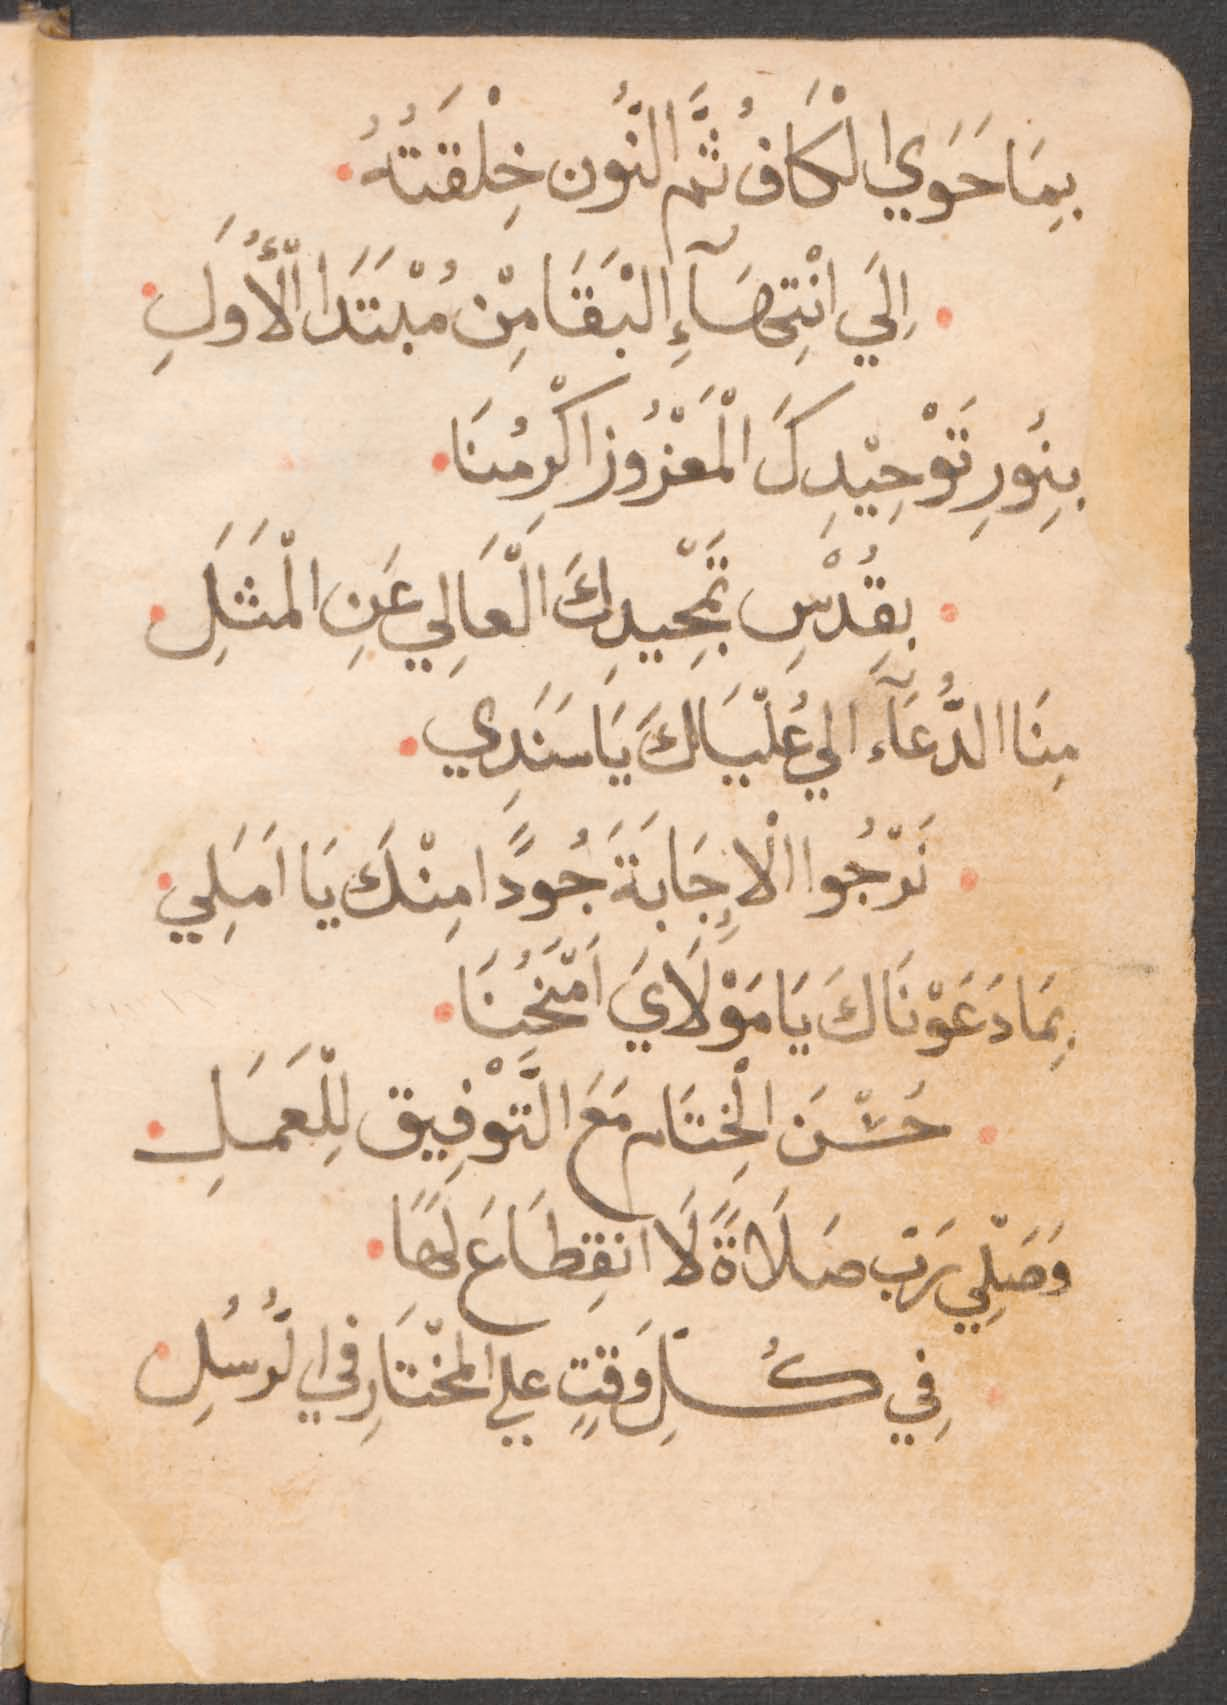 بِمَا حَوَي الْكَافُ ثُمَّ النُّون خِلْقَتُهُ
اِلَي انْتِهَآءِ الْبَقَا مِنْ مُبْتَدَا الْأُوَلِ
بِنُورِ تَوْحِيْدِكَ الْمَعْزُوزِ اكْرِمْنَا
بِقُدْسِ تَمْجِيدِكَ الْعَالِي عَنِ الْمَثَلِ
مِنَا الدُّعَآء الي عُلْيَاكَ يَا سَنَدِي
نَرْجُوا الْاِجَابَةَ جُودًا مِنْكَ يَا اَمَلِي
بِمَا دَعَوْنَاكَ يَا مَوْلَايَ اَمْنَحُنَا
حُسْنَ الْخِتَام مَعَ التَّوْفِيق لِلْعَمَلِ
وَصَلِّي رَبِّ صَلَاةً لَا انْقِطَاعَ لَهَا
فِي كُلِ وَقتٍ علي الْمُخْتَارِ في الرُّسُلِ